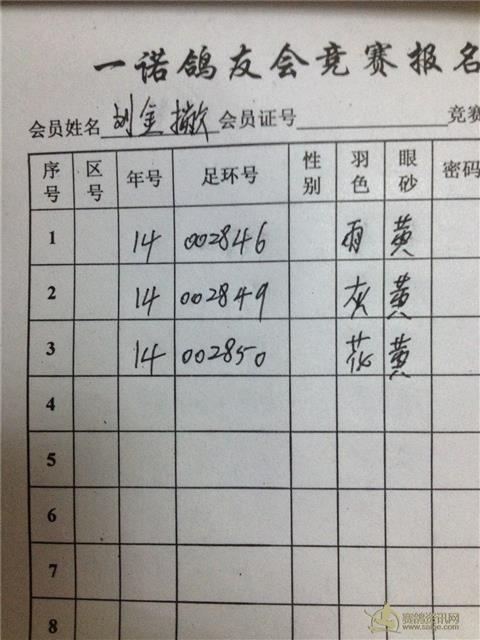 一诺鸽友会竞赛报名
会员姓名 刘金撖 会员证号 竞赛
序号 区号 年号 足环号 性别 羽色 眼砂 密码
1 14 002846 雨 黄
2 14 002849 灰 黄
3 14 002850 花 黄
4
5
6
7
8
赛鸽资讯网
www.saige.com